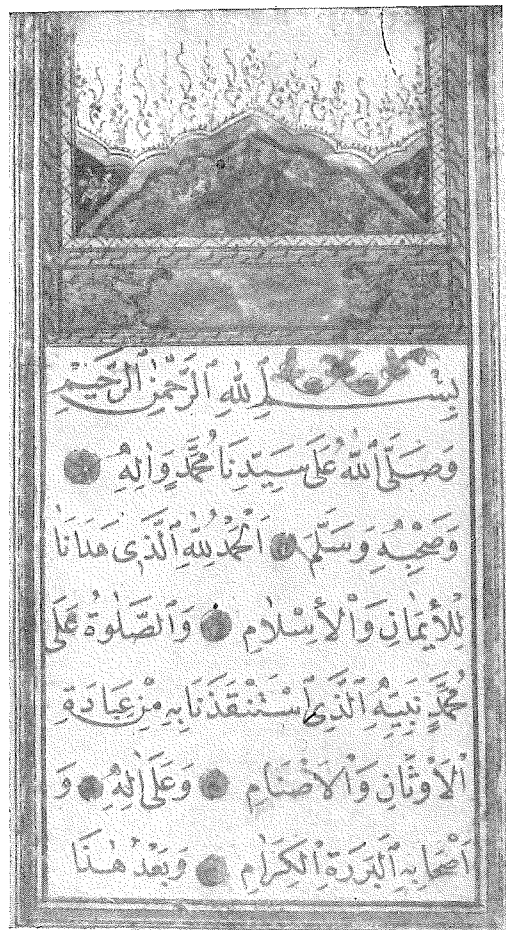 بِسْمِ ٱللهِ ٱلرَّحْمٰنِ ٱلرَّحِيْمِ
وَصَلَّى ٱللهُ عَلَى سَيِّدِنَا مُحَمَّدٍ وَاٰلِهِ
وَصَحْبِهِ وَسَلَّمَ اَلْحَمْدُ لِلّٰهِ ٱلَّذِى هَدَانَا
لِلْأِيْمَانِ وَٱلْأِسْلَامِ وَٱلصَّلٰوةُ عَلَى
مُحَمَّدٍ نَبِيِّهِ ٱلَّذِى ٱسْتَنْقَذَنَا بِهِ مِنْ عِبَادَةِ
ٱلْاَوْثَانِ وَٱلْاَصْنَامِ وَعَلَى اٰلِهِ وَ
اَصْحَابِهِ ٱلْبَرَرَةِ ٱلْكِرَامِ وَبَعْدُ هٰذَا